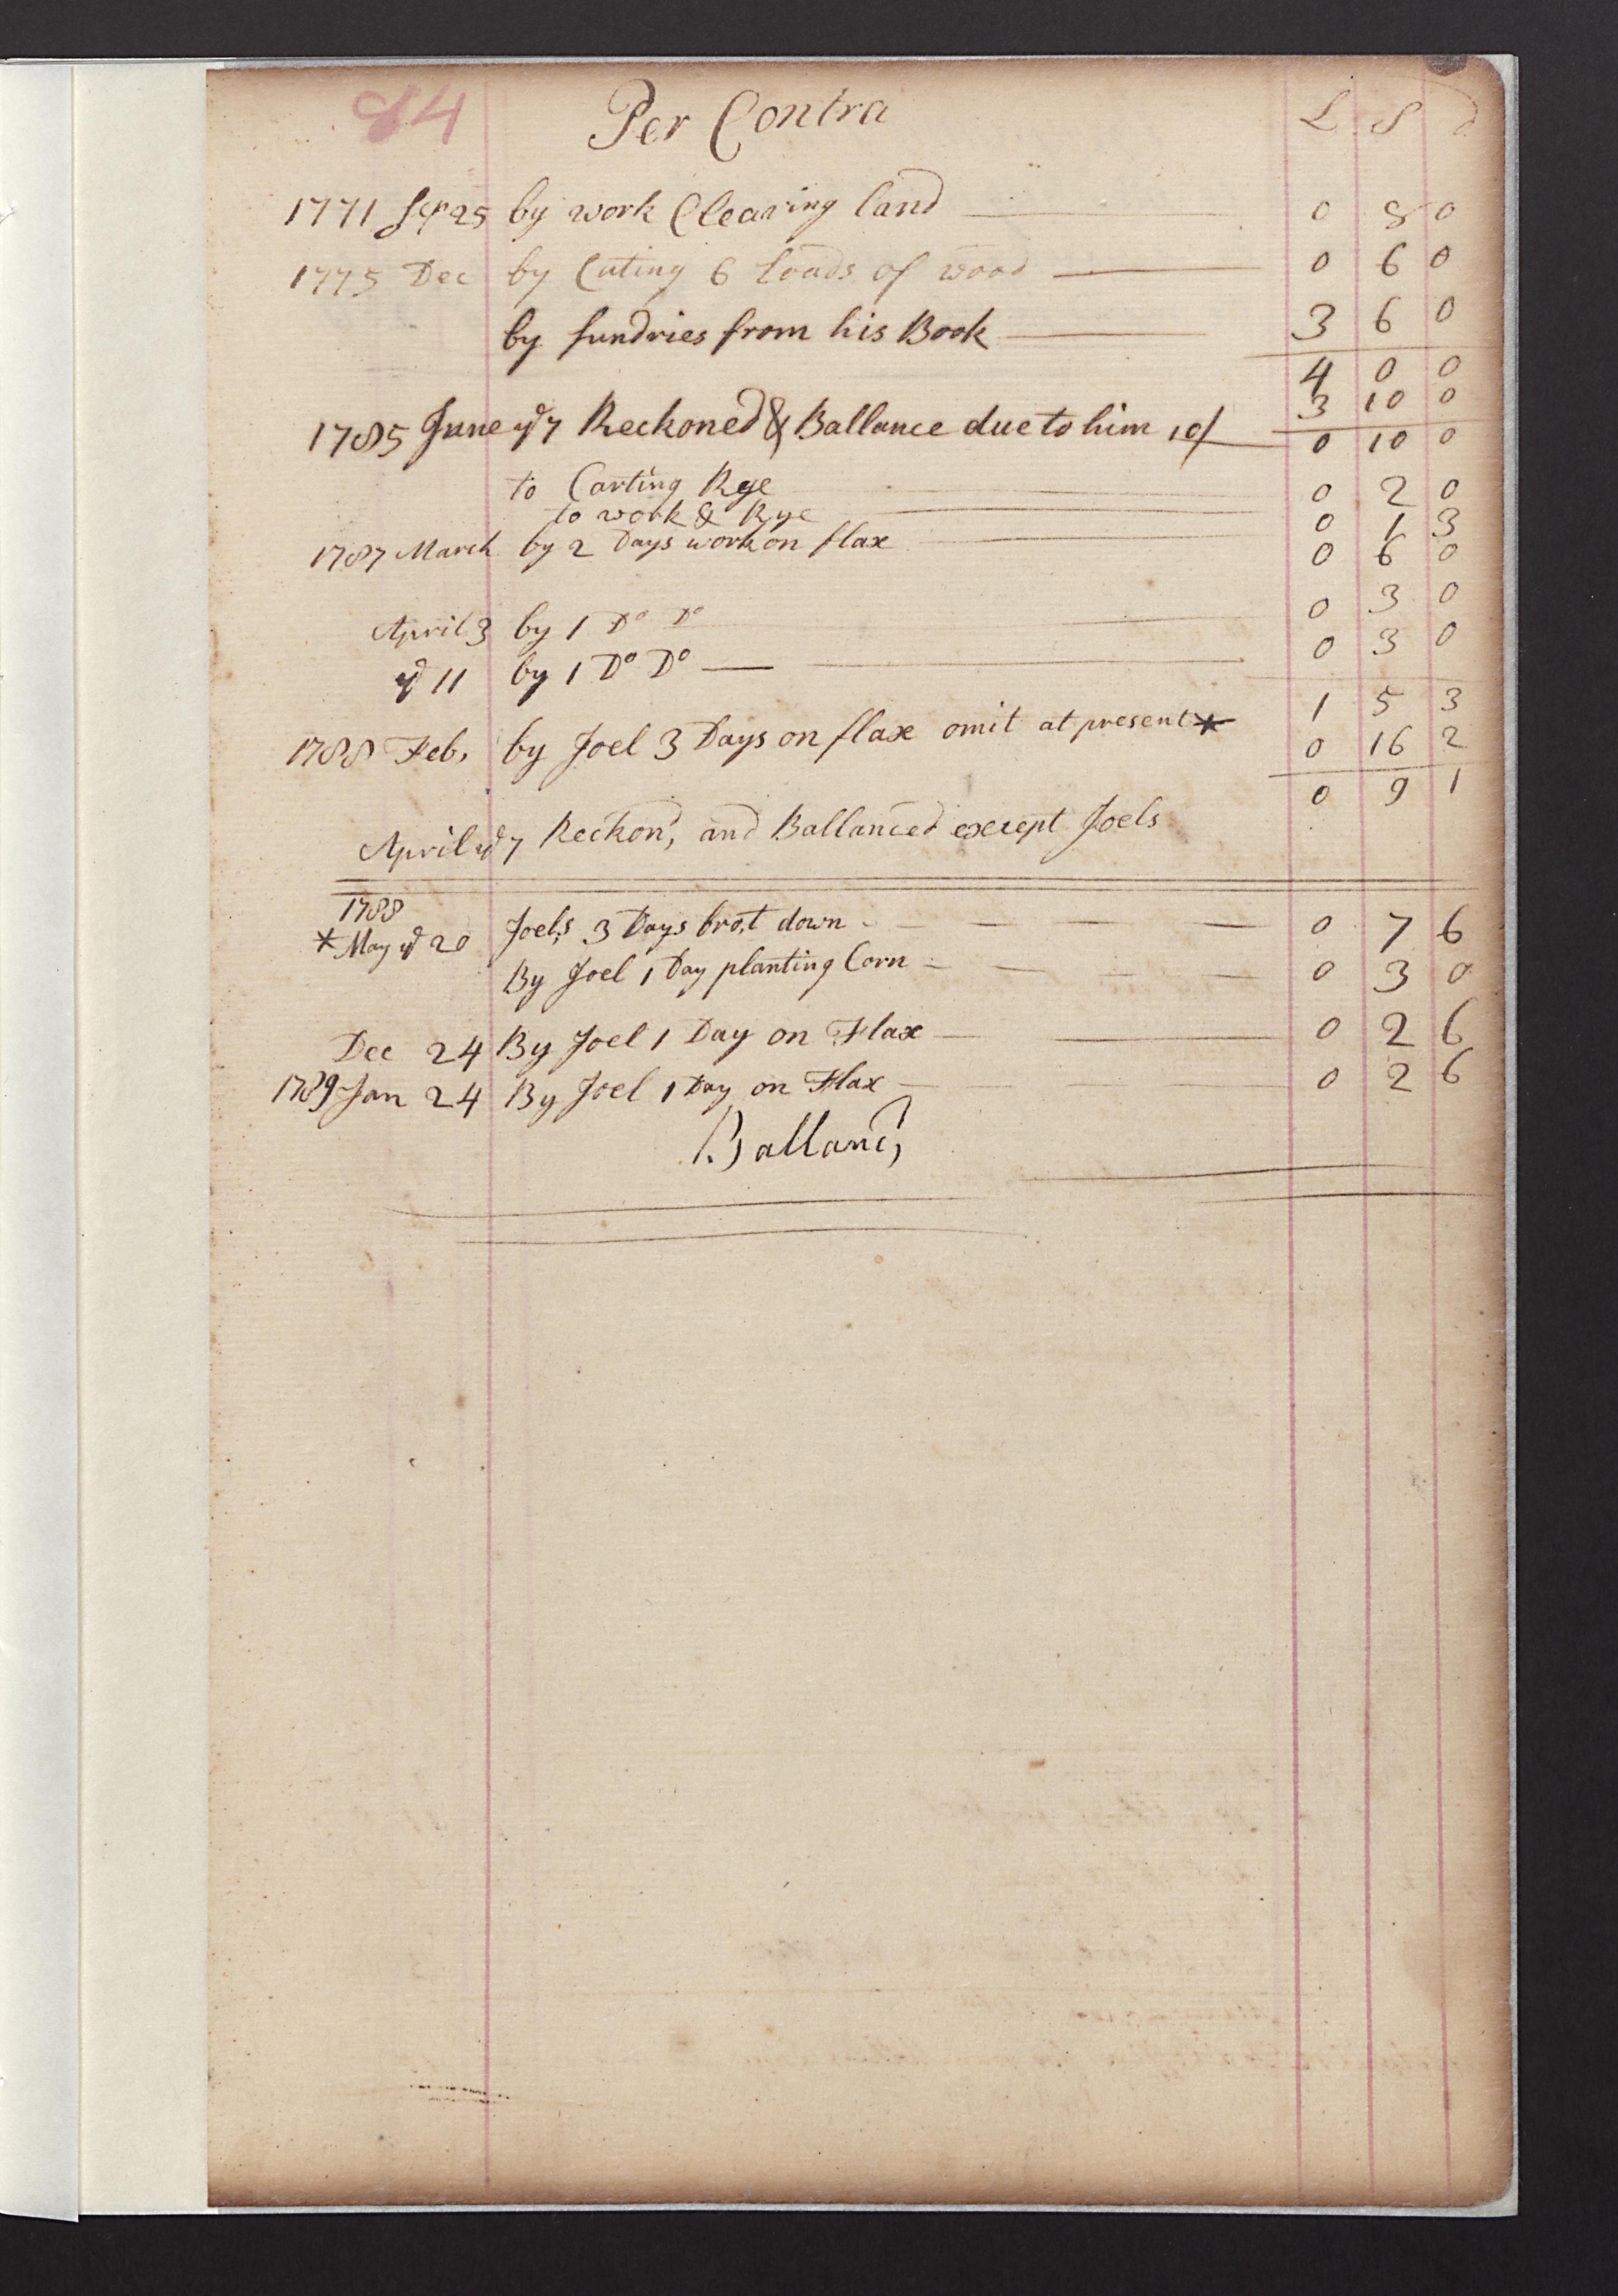 84 Per Contra L S d
1771 Sep 25 by work Clearing land 0 8 0
1775 Dec by Cuting 6 Loads of wood 0 6 0
by sundries from his Book 3 6 0
4 0 0
3 10 0
1785 June ye 7 Reckoned & Ballance due to him 10/ 0 10 0
to Carting Rye 0 2 0
to work & Rye 0 1 3
1787 March by 2 Days work on flax 0 6 0
April 3 by 1 Do Do 0 3 0
ye 11 by 1 Do Do 0 3 0
1 5 3
1788 Feb, by Joel 3 Days on flax omit at present * 0 16 2
0 9 1
April ye 7 Reckond, and Ballanced except Joels
1788
* May ye 20 Joel,s 3 Days bro,t down 0 7 6
By Joel 1 Day planting Corn 0 3 0
Dec 24 By Joel 1 Day on Flax 0 2 6
1789 Jan 24 By Joel 1 Day on Flax 0 2 6
Ballancd,